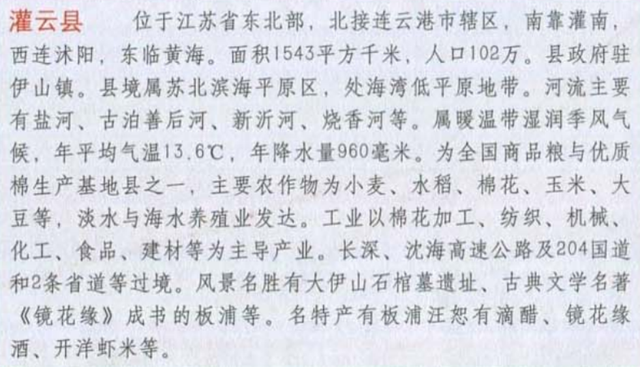 灌云县 位于江苏省东北部，北接连云港市辖区，南靠灌南，
西连沭阳，东临黄海。面积1543平方千米，人口102万。县政府驻
伊山镇。县境属苏北滨海平原区，处海湾低平原地带。河流主要
有盐河、古泊善后河、新沂河、烧香河等。属暖温带湿润季风气
候，年平均气温13.6℃，年降水量960毫米。为全国商品粮与优质
棉生产基地县之一，主要农作物为小麦、水稻、棉花、玉米、大
豆等，淡水与海水养殖业发达。工业以棉花加工、纺织、机械、
化工、食品、建材等为主导产业。长深、沈海高速公路及204国道
和2条省道等过境。风景名胜有大伊山石棺墓遗址、古典文学名著
《镜花缘》成书的板浦等。名特产有板浦汪恕有滴醋、镜花缘
酒、开洋虾米等。